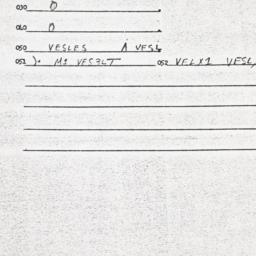 030 0
040 0
050 VESLES A VESL
051 ). M1 VES3LT 052 VELX1 VESL,